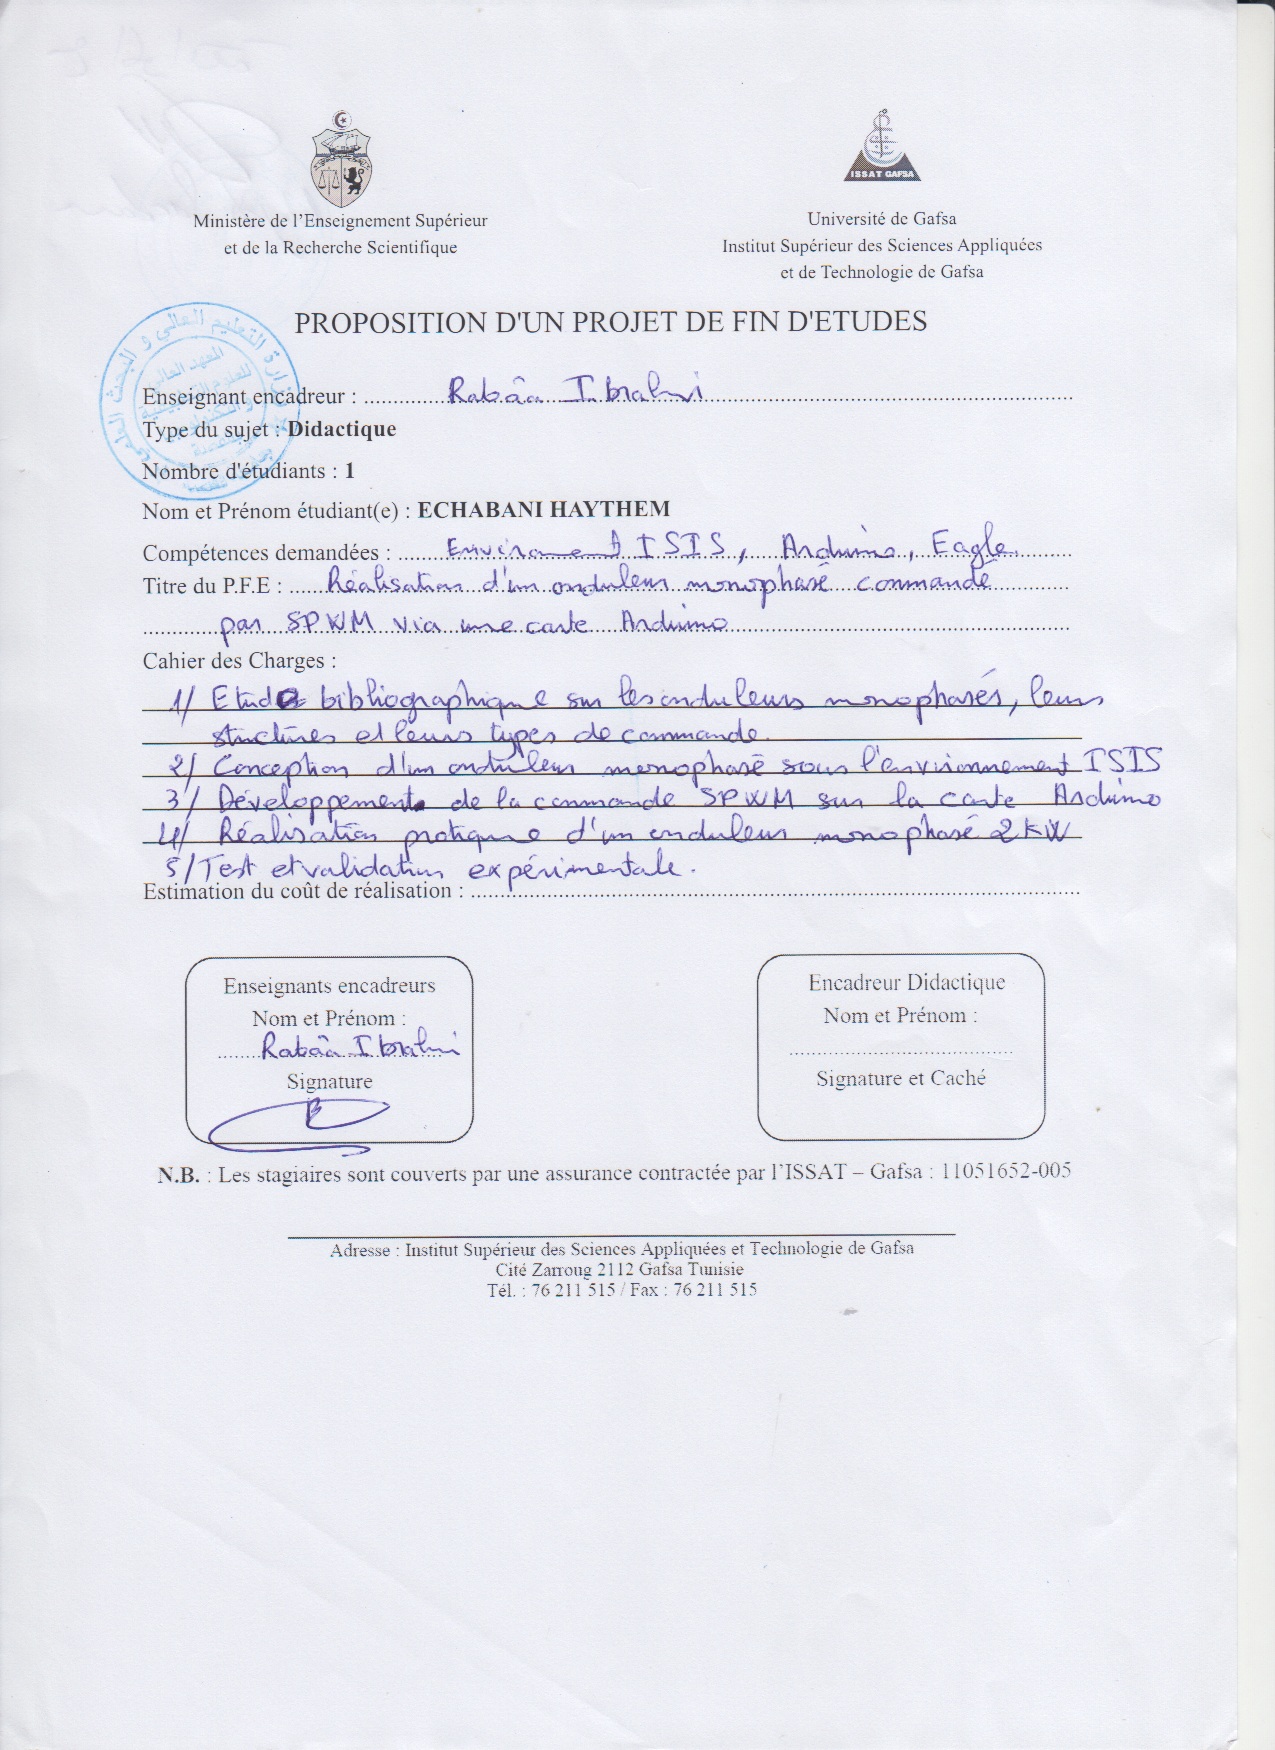 ISSAT GAFSA
Ministère de l'Enseignement Supérieur
et de la Recherche Scientifique
Université de Gafsa
Institut Supérieur des Sciences Appliquées
et de Technologie de Gafsa
PROPOSITION D'UN PROJET DE FIN D'ETUDES
وزارة التعليم العالي و البحث العلمي
المعهد العالي
للعلوم التطبيقية
و التكنولوجيا
بقفصة
Enseignant encadreur : Rabâa Ibrahmi
Type du sujet : Didactique
Nombre d'étudiants : 1
Nom et Prénom étudiant(e) : ECHABANI HAYTHEM
Compétences demandées : ISIS, Arduino, Eagle.
Titre du P.F.E : Réalisation d'un onduleur monophasé commandé
par SPWM via une carte Arduino
Cahier des Charges :
1/ Etude bibliographique sur les onduleurs monophasés, leurs
structures et leurs types de commande.
2/ Conception d'un onduleur monophasé sous l'environnement ISIS
3/ Développement de la commande SPWM sur la carte Arduino
4/ Réalisation pratique d'un onduleur monophasé 2kW
5/ Test et validation expérimentale.
Estimation du coût de réalisation :
Enseignants encadreurs
Nom et Prénom :
Rabâa Ibrahmi
Signature
Encadreur Didactique
Nom et Prénom :
Signature et Caché
N.B. : Les stagiaires sont couverts par une assurance contractée par l'ISSAT – Gafsa : 11051652-005
Adresse : Institut Supérieur des Sciences Appliquées et Technologie de Gafsa
Cité Zarroug 2112 Gafsa Tunisie
Tél. : 76 211 515 / Fax : 76 211 515